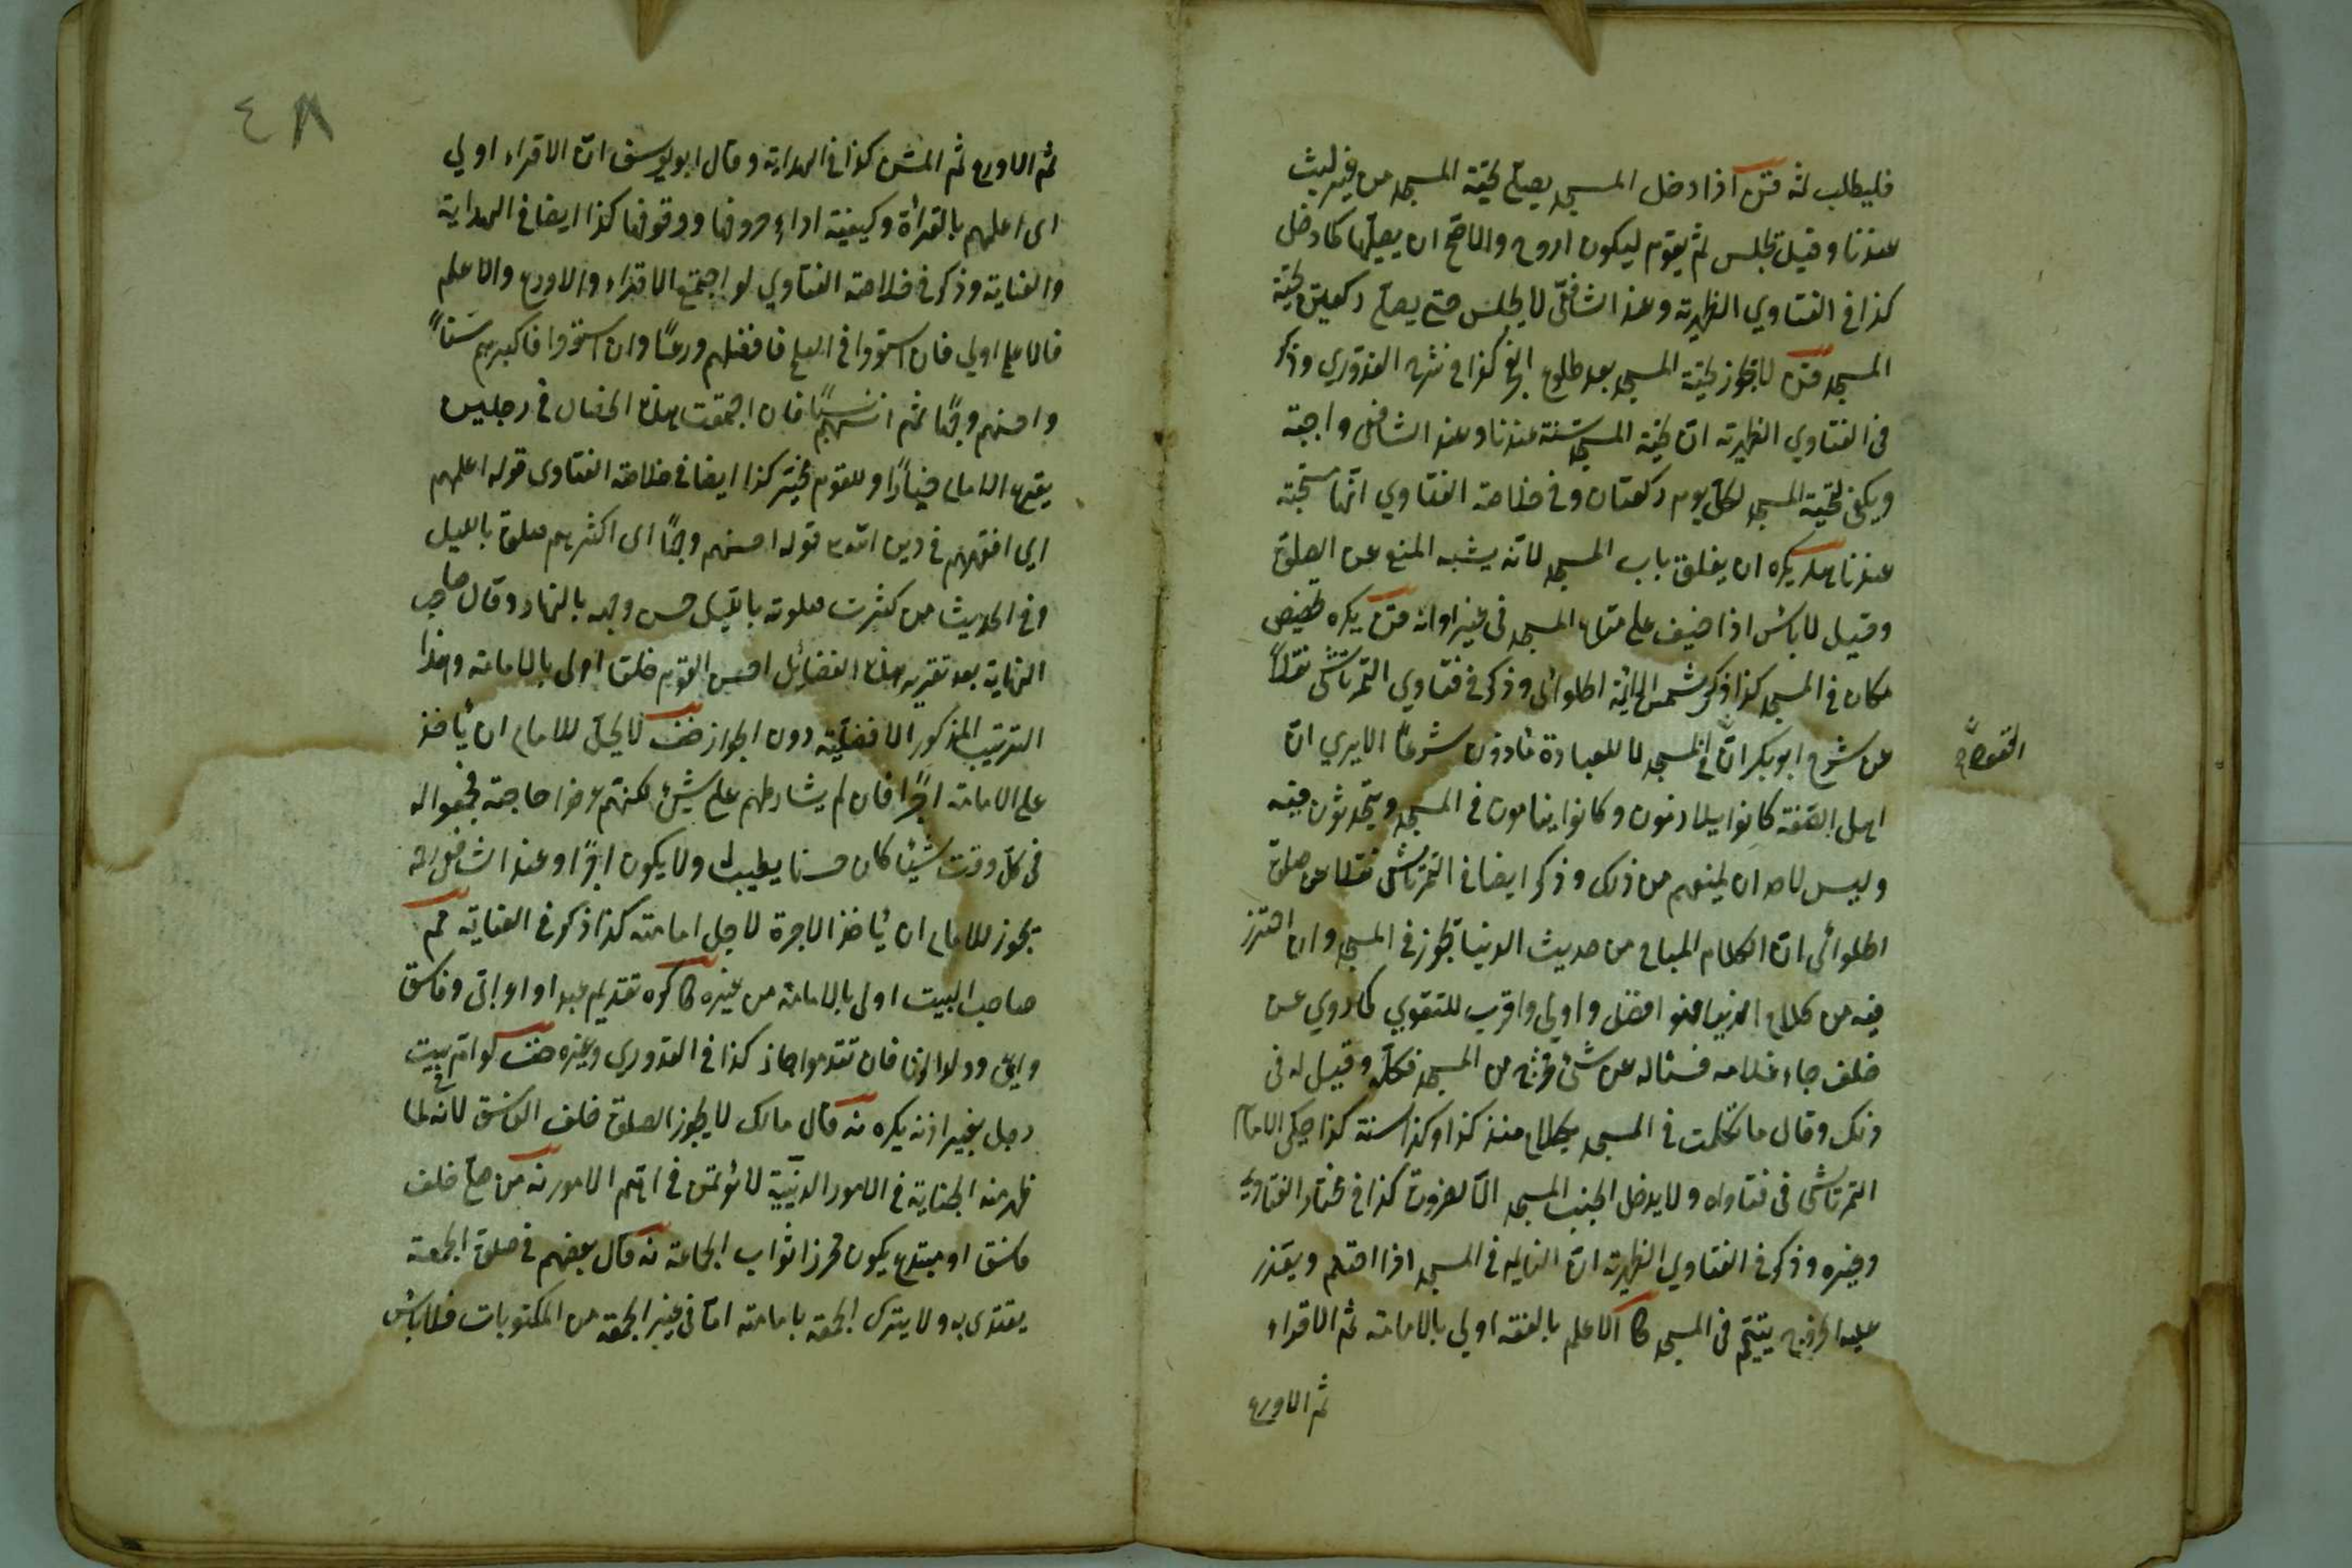 فليطلب ثمه فتن اذا دخل المسجد يصلي تحية المسجد من غير لبث
عندنا وقيل يجلس ثم يقوم ليكون اروح والاصح ان يصليها كما دخل
كذا في الفتاوي الظهيرية وعند الشافعي لا يجلس حتى يصلي ركعتين تحية
المسجد فتن لا يجوز تحية المسجد بعد طلوع الفجر كذا في شرح القدوري وذكر
في الفتاوي الظهيرية ان تحية المسجد سنة عندنا وعند الشافعي واجبة
ويكفي لتحية المسجد لكل يوم ركعتان وفي خلاصة الفتاوي انها مستحبة
عندنا يكره ان يغلق باب المسجد لانه يشبه المنع عن الصلوة
وقيل لا باس اذا خيف على متاع المسجد في غير اوانه فتن يكره تخصيص
مكان في المسجد كذا ذكر شمس الائمة الحلوائي وذكر في فتاوي التمرتاشي نقلاً
عن شرح ابو بكر ان في المسجد لما للعبادة مأذون شرعًا الا يرى ان
اهل الصفة كانوا يلازمون وكانوا ينامون في المسجد ويتحدثون فيه
وليس لاحد ان يمنعهم من ذلك وذكر ايضا في التمرتاشي نقلا عن صلوة
الحلوائي ان الكلام المباح من حديث الدنيا يجوز في المسجد وان احترز
فيه من كلام الدنيا فهو افضل واولى واقرب للتقوي كما روي عن
خلف جاء غلامه فسئاله عن شئ فخرج من المسجد فكلمه وقيل له في
ذلك وقال ما تكلمت في المسجد بكلام منذ كذا وكذا سنة كذا حكى الامام
التمرتاشي في فتاواه ولا يدخل الجنب المسجد الا لضرورة كذا في مختار الفتاوي
وغيره وذكر في الفتاوي الظهيرية ان النائم في المسجد اذا احتلم ويعذر
عليه الخروج يتيمم في المسجد كا الاعلم بالفقه اولي بالامامة ثم الاقراء
ثم الاورع
٤٨
ثم الاورع ثم المسن كذا في الهداية وقال ابو يوسف ان الاقراء اولي
اى اعلمهم بالقرأة وكيفية اداء حروفها ووقوفها كذا ايضا في الهداية
والغاية وذكر في خلاصة الفتاوي لو اجتمع الاقراء والاورع والاعلم
فالاعلم اولي فان استووا في العلم فافضلهم ورعًا وان استووا فاكبرهم سنًا
واحسنهم وجهًا ثم انسبهم نسبًا فان اجتمعت هذه الخصال في رجلين
يقرع الامام خيارًا وللقوم تخير كذا ايضا في خلاصة الفتاوى قوله اعلمهم
اي افقههم في دين الله قوله احسنهم وجهًا اى اكثرهم صلوة بالليل
وفي الحديث من كثرت صلوته بالليل حسن وجهه بالنهار وقال صاحب
النهاية بعد تقرير هذه الفضائل احسن القوم خلقا اولى بالامامة وهذا
الترتيب المذكور الافضلية دون الجواز خف لا يحل للامام ان يأخذ
على الامامة اجرًا فان لم يشارطهم على شيئ لكنهم عرفوا حاجته فجمعوا له
في كل وقت شيئا كان حسنا يطيب له ولا يكون اجرًا وعند الشافعي رحمه
يجوز للامام ان يأخذ الاجرة لاجل امامته كذا ذكر في الغاية ثم
صاحب البيت اولى بالامامة من غيره كا كره تقديم عبد او اعرابي وفاسق
واعمى وولد الزنا فان تقدموا جاز كذا في القدوري وغيره خف لو ام في بيت
رجل بغير اذنه يكره نه قال مالك لا يجوز الصلوة خلف الفاسق لانه لما
ظهر منه الجناية في الامور الدينية لا يؤتمن في اهم الامور نه من صلى خلف
فاسق او مبتدع يكون محرزا ثواب الجماعة نه قال بعضهم في صلوة الجمعة
يقتدى به ولا يترك الجمعة بامامته اما في غير الجمعة من المكتوبات فلا باس